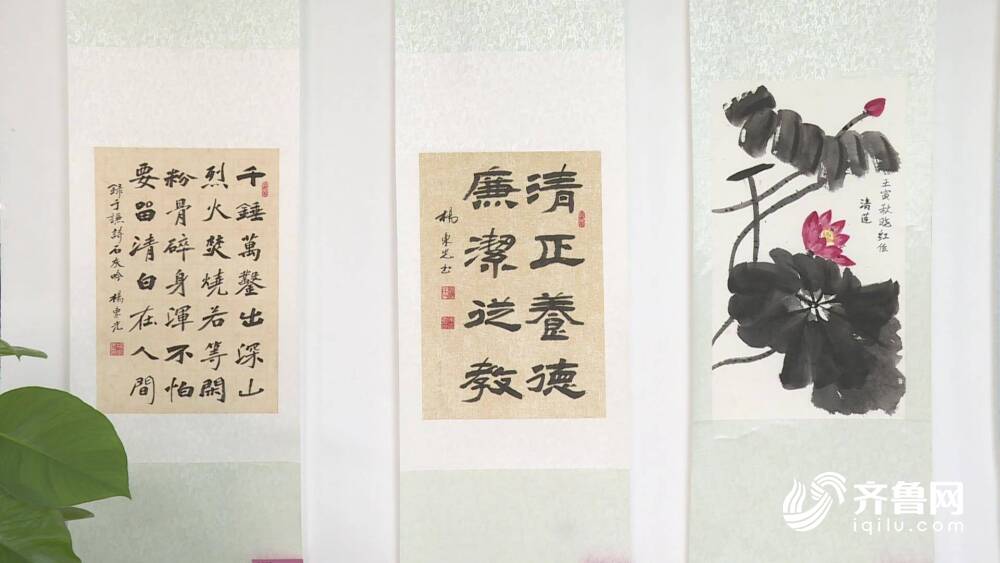 千錘萬鑿出深山
烈火焚燒若等閑
粉骨碎身渾不怕
要留清白在人間
錄于謙詩石灰吟 楊東光
清正養德
廉潔從教
楊東光书
壬寅秋晓红作
清莲
齐鲁网
iqilu.com